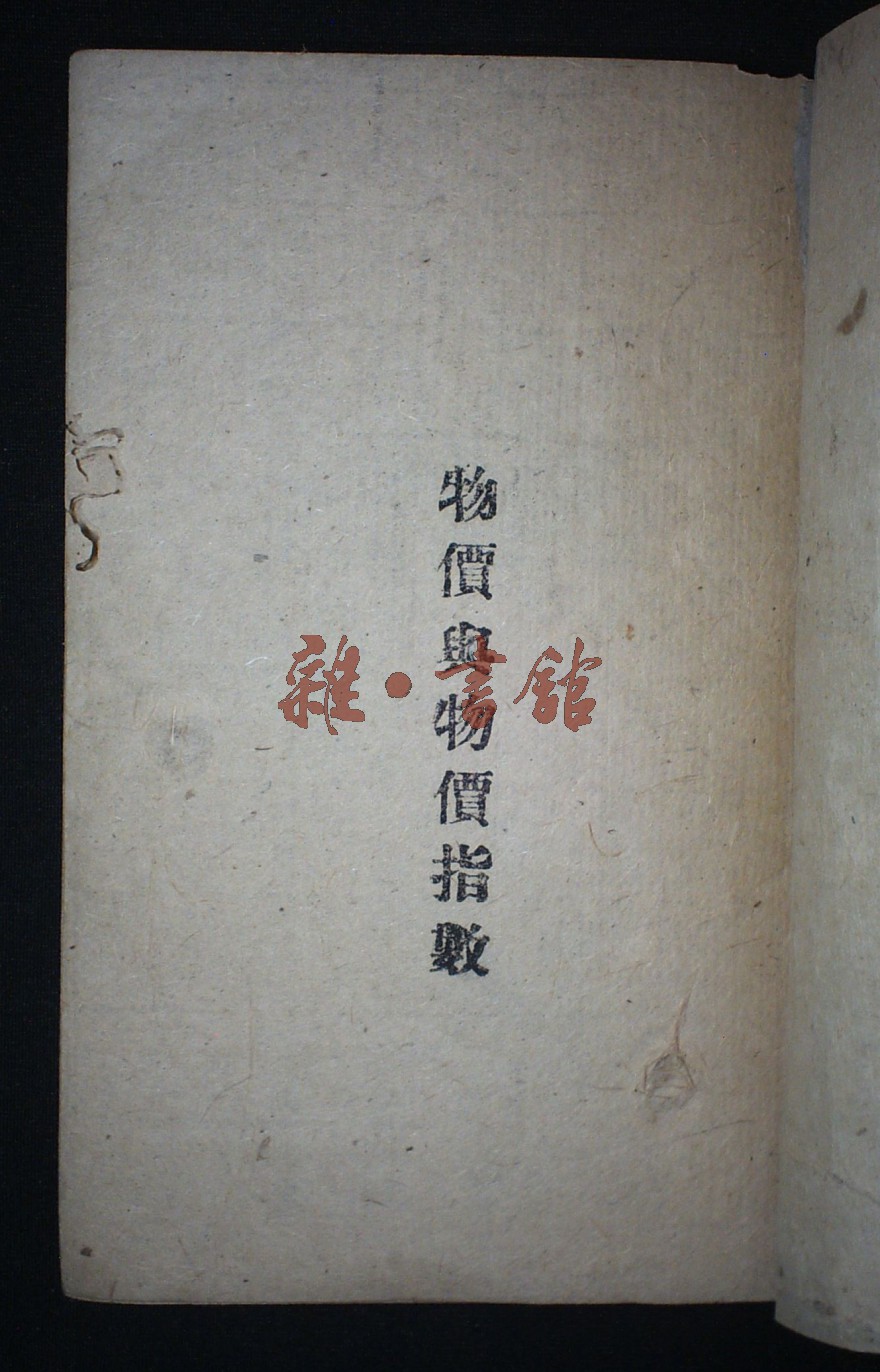 物價與物價指數
雜·書館